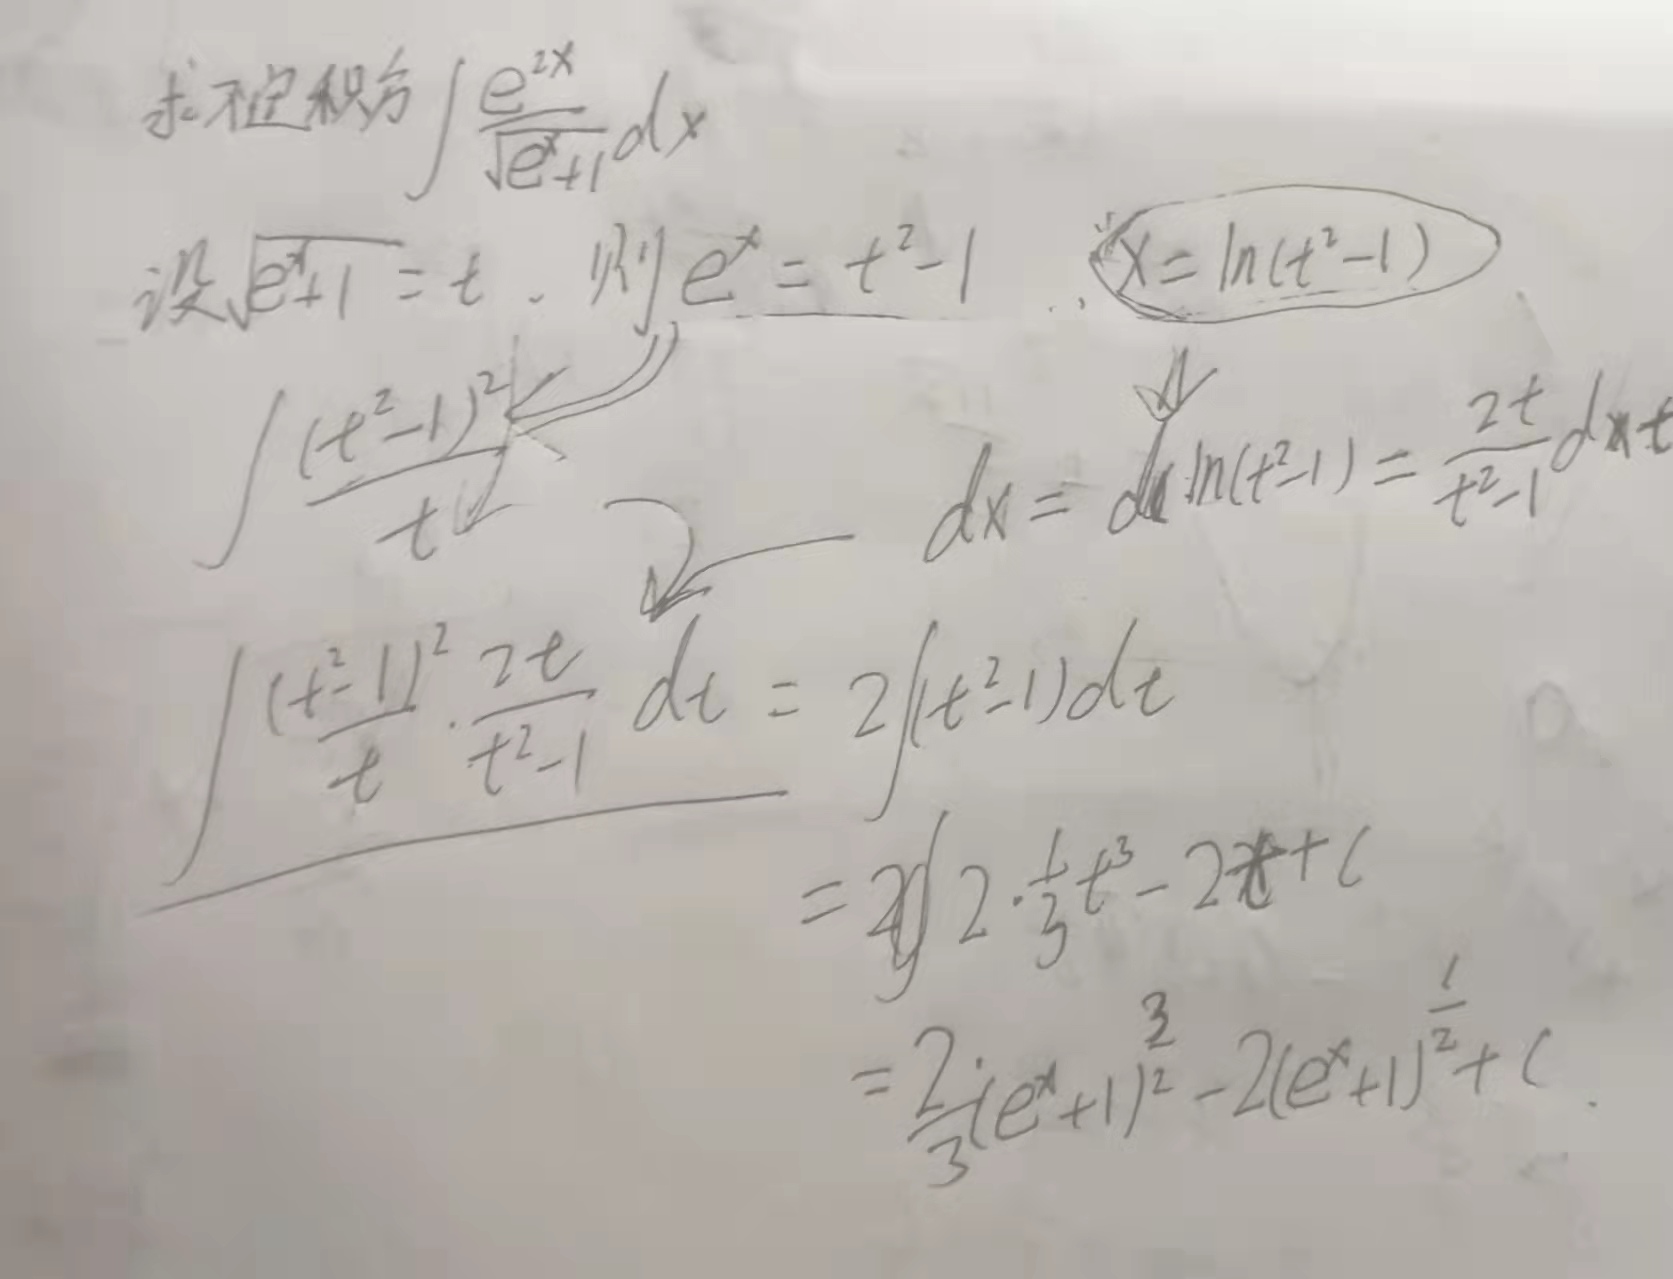 求不定积分∫e^{2x}/√(e^x+1) dx
设√(e^x+1) = t . 则 e^x = t²-1 ∴ x = ln(t²-1)
∫(t²-1)²/t
dx = d ln(t²-1) = 2t/(t²-1) dt
∫(t²-1)²/t · 2t/(t²-1) dt = 2∫(t²-1)dt
= 2·1/3 t³ - 2t + C
= 2/3 (e^x+1)^{3/2} - 2(e^x+1)^{1/2} + C .